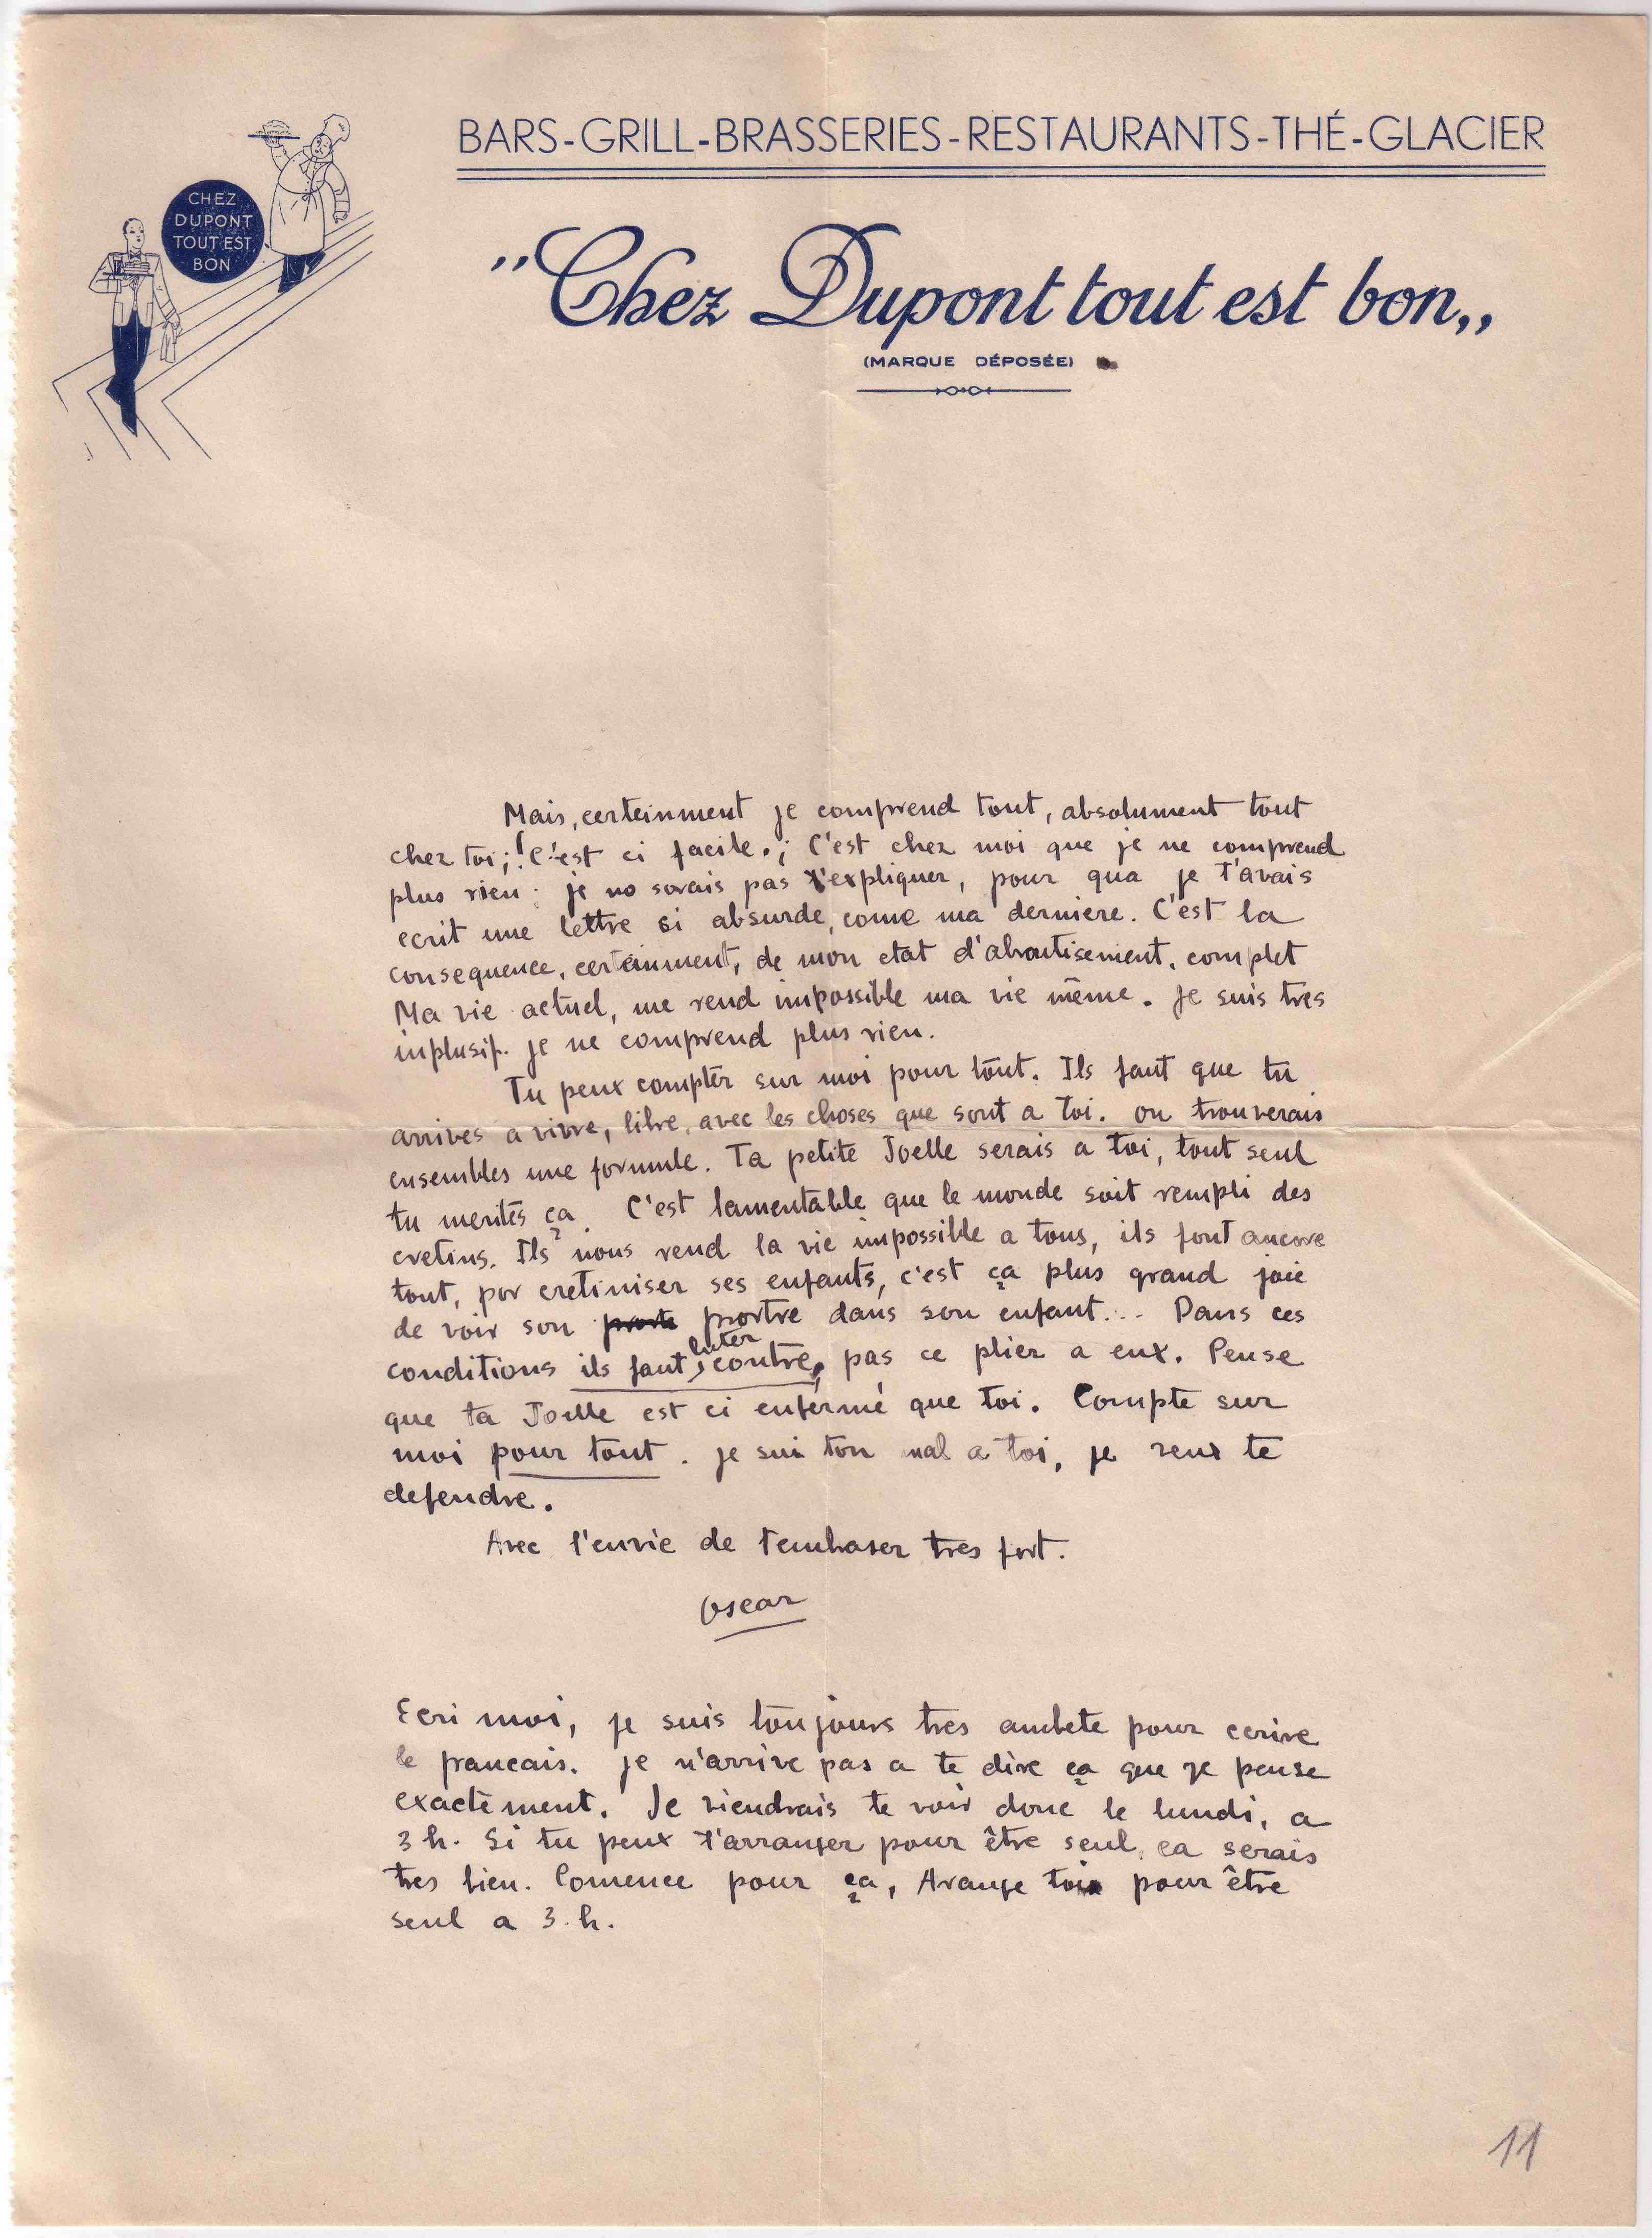 BARS-GRILL-BRASSERIES-RESTAURANTS-THÉ-GLACIER
CHEZ
DUPONT
TOUT EST
BON
"Chez Dupont tout est bon,,
(MARQUE DÉPOSÉE)
Mais, certeinment je comprend tout, absolument tout
chez toi; ! C'est ci facile.; C'est chez moi que je ne comprend
plus rien; je no sarais pas t'expliquer, pour qua je t'avais
ecrit une lettre si absurde, come ma derniere. C'est la
consequence, certeinment, de mon etat d'abrutisement, complet
Ma vie actuel, me rend impossible ma vie même. Je suis tres
inplusif. je ne comprend plus rien.
Tu peux compter sur moi pour tout. Ils faut que tu
arrives a vivre, libre, avec les choses que sont a toi. on trouverais
ensembles une formule. Ta petite Joelle serais a toi, tout seul
tu merites ça. C'est lamentable que le monde soit rempli des
cretins. Ils nous rend la vie impossible a tous, ils font ancore
tout, por cretiniser ses enfants, c'est ça plus grand joie
de voir son portre dans son enfant... Dans ces
conditions ils faut luter contre, pas ce plier a eux. Pense
que ta Joelle est ci enfermé que toi. Compte sur
moi pour tout. je sui ton a toi, je veux te
defendre.
Avec l'envie de t'embraser tres fort.
Oscar
Ecri moi, je suis toujours tres ambete pour ecrire
le francais. je n'arrive pas a te dire ça que je pense
exactement. Je viendrais te voir donc le lundi, a
3 h. Si tu peux t'arranger pour être seul, ça serais
tres bien. Comence pour ça, Arange toi pour être
seul a 3. h.
11